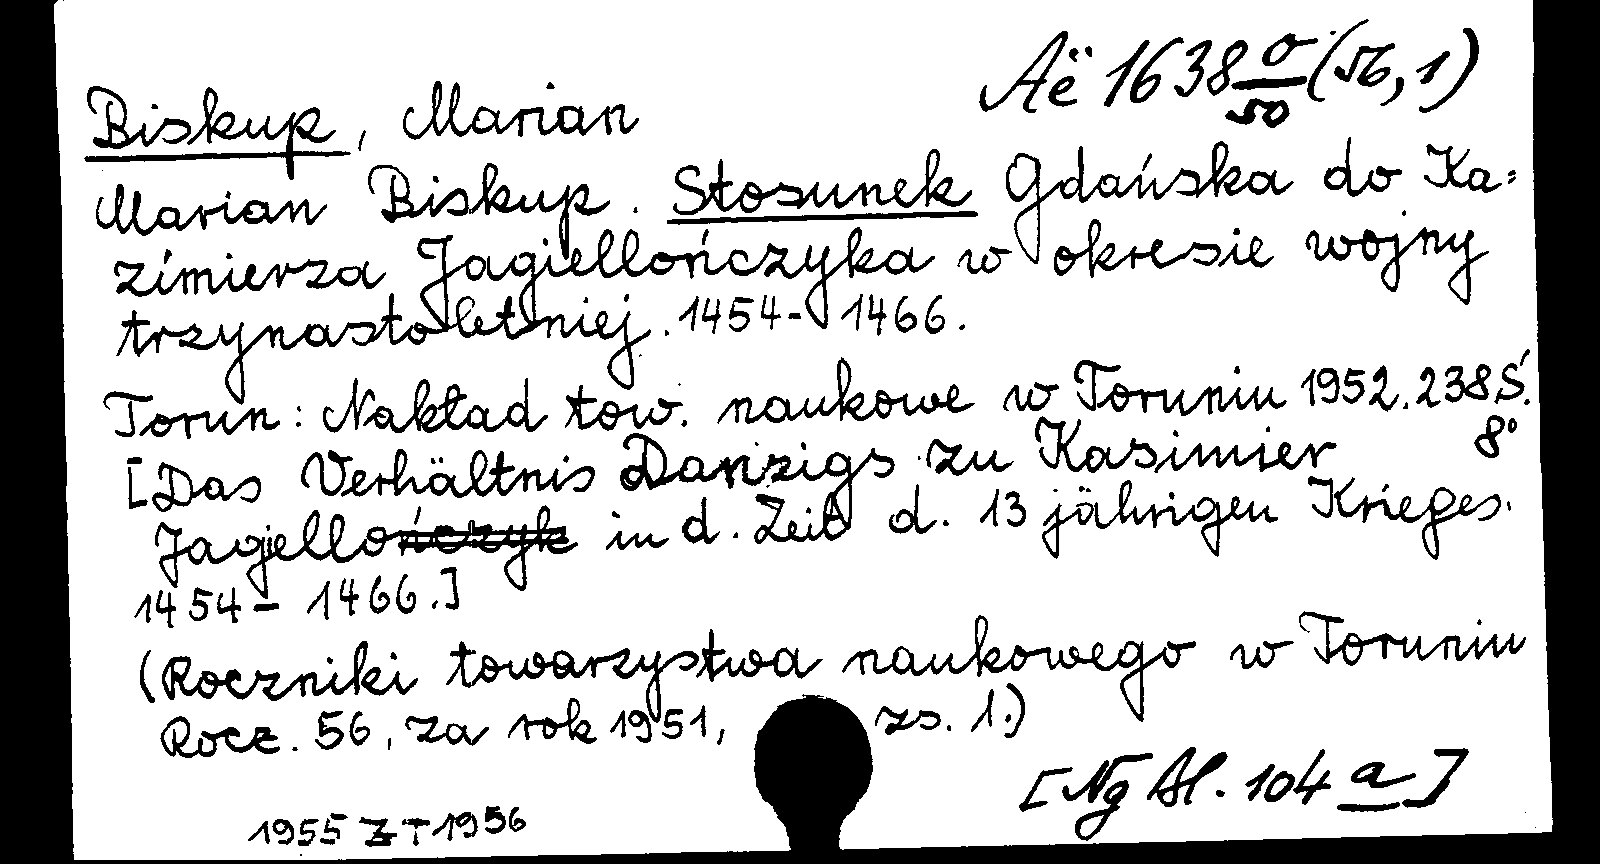 Aë 1638 o/50 (56,1)
Biskup, Marian
Marian Biskup. Stosunek Gdańska do Ka=
zimierza Jagiellończyka w okresie wojny
trzynastoletniej. 1454-1466.
Toruń: Nakład tow. naukowe w Toruniu 1952. 238 S.
8°
[Das Verhältnis Danzigs zu Kasimier
Jagiellończyk in d. Zeit d. 13 jährigen Krieges.
1454-1466.]
(Roczniki towarzystwa naukowego w Toruniu
Rocz. 56, za rok 1951, zs. 1.)
[Ng Al. 104 a]
1955 Z T 1956